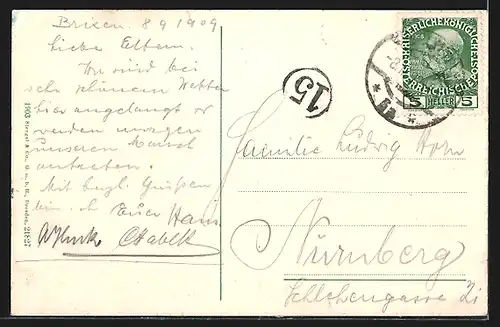 Brixen. 8 9 1909
Liebe Eltern.
Wir sind bei
sehr schönem Wetter
hier angelangt u
werden morgen
unseren Marsch
antreten.
Mit herzl. Grüßen
Euer Hans
15
KAISERLICHE KÖNIGLICHE
ÖSTERREICHISCHE
5 HELLER 5
Familie Ludwig Horn
Nürnberg
1903 Stengel & Co., G. m. b. H., Dresden. 21827